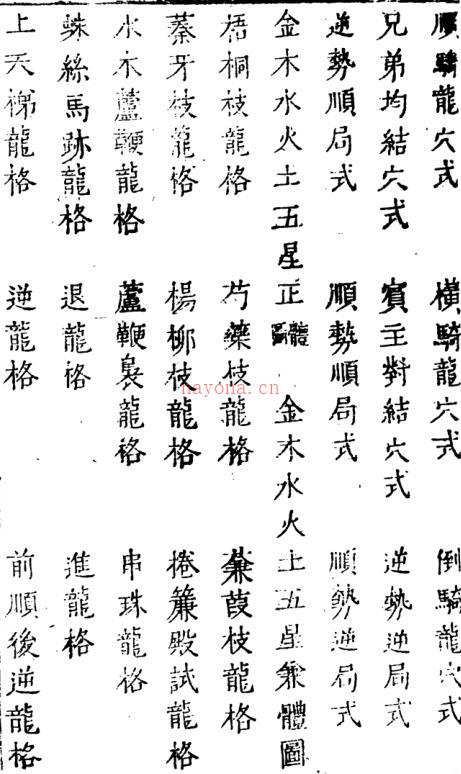 順騎龍穴式　橫騎龍穴式　倒騎龍穴式
兄弟均結穴式　賓主對結穴式　逆勢逆局式
逆勢順局式　順勢順局式　順勢逆局式
金木水火土五星正體圖　金木水火土五星兼體圖
梧桐枝龍格　芍藥枝龍格　蒹葭枝龍格
蓁牙枝龍格　楊柳枝龍格　捲簾殿試龍格
水木蘆鞭龍格　蘆鞭裊龍格　串珠龍格
蛛絲馬跡龍格　退龍格　進龍格
上天梯龍格　逆龍格　前順後逆龍格
nayona.cn